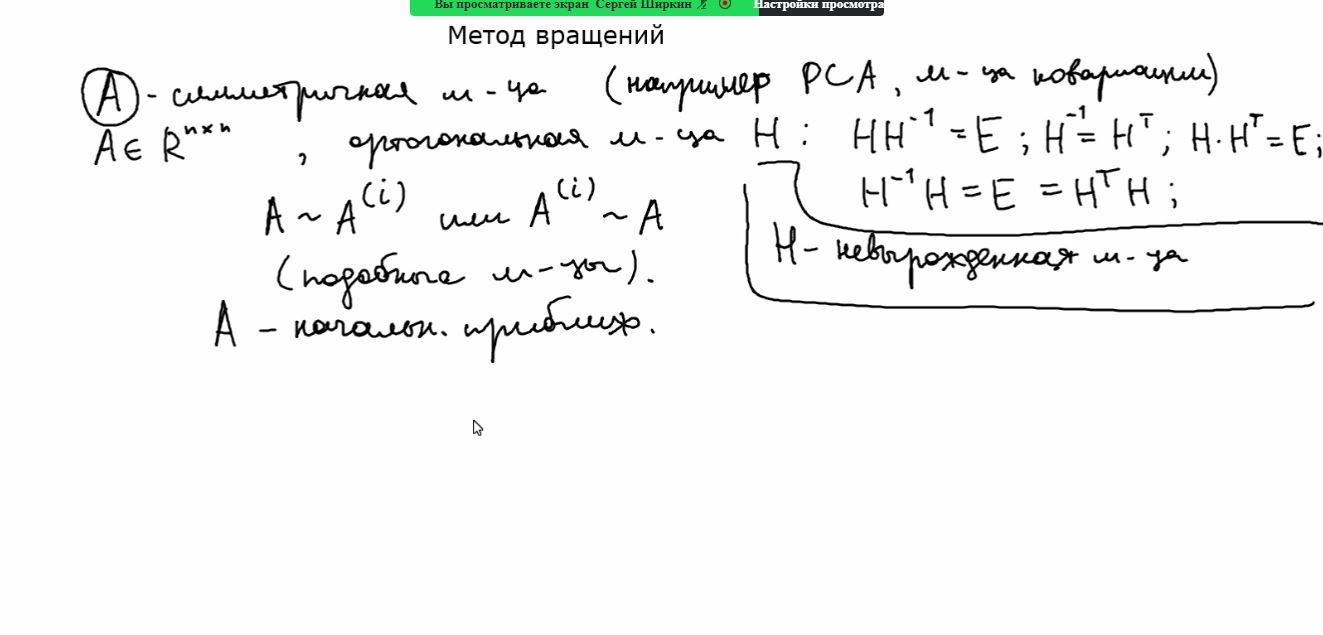 Вы просматриваете экран Сергей Ширкин Настройки просмотра
Метод вращений
A - симметричная м-ца (например PCA, м-ца ковариации)
A ∈ R^{n×n}, ортогональная м-ца H : HH^{-1} = E ; H^{-1} = H^T ; H·H^T = E;
H^{-1}H = E = H^T H ;
A ~ A^{(i)} или A^{(i)} ~ A
H - невырожденная м-ца
(подобные м-цы).
A - начальн. приближ.